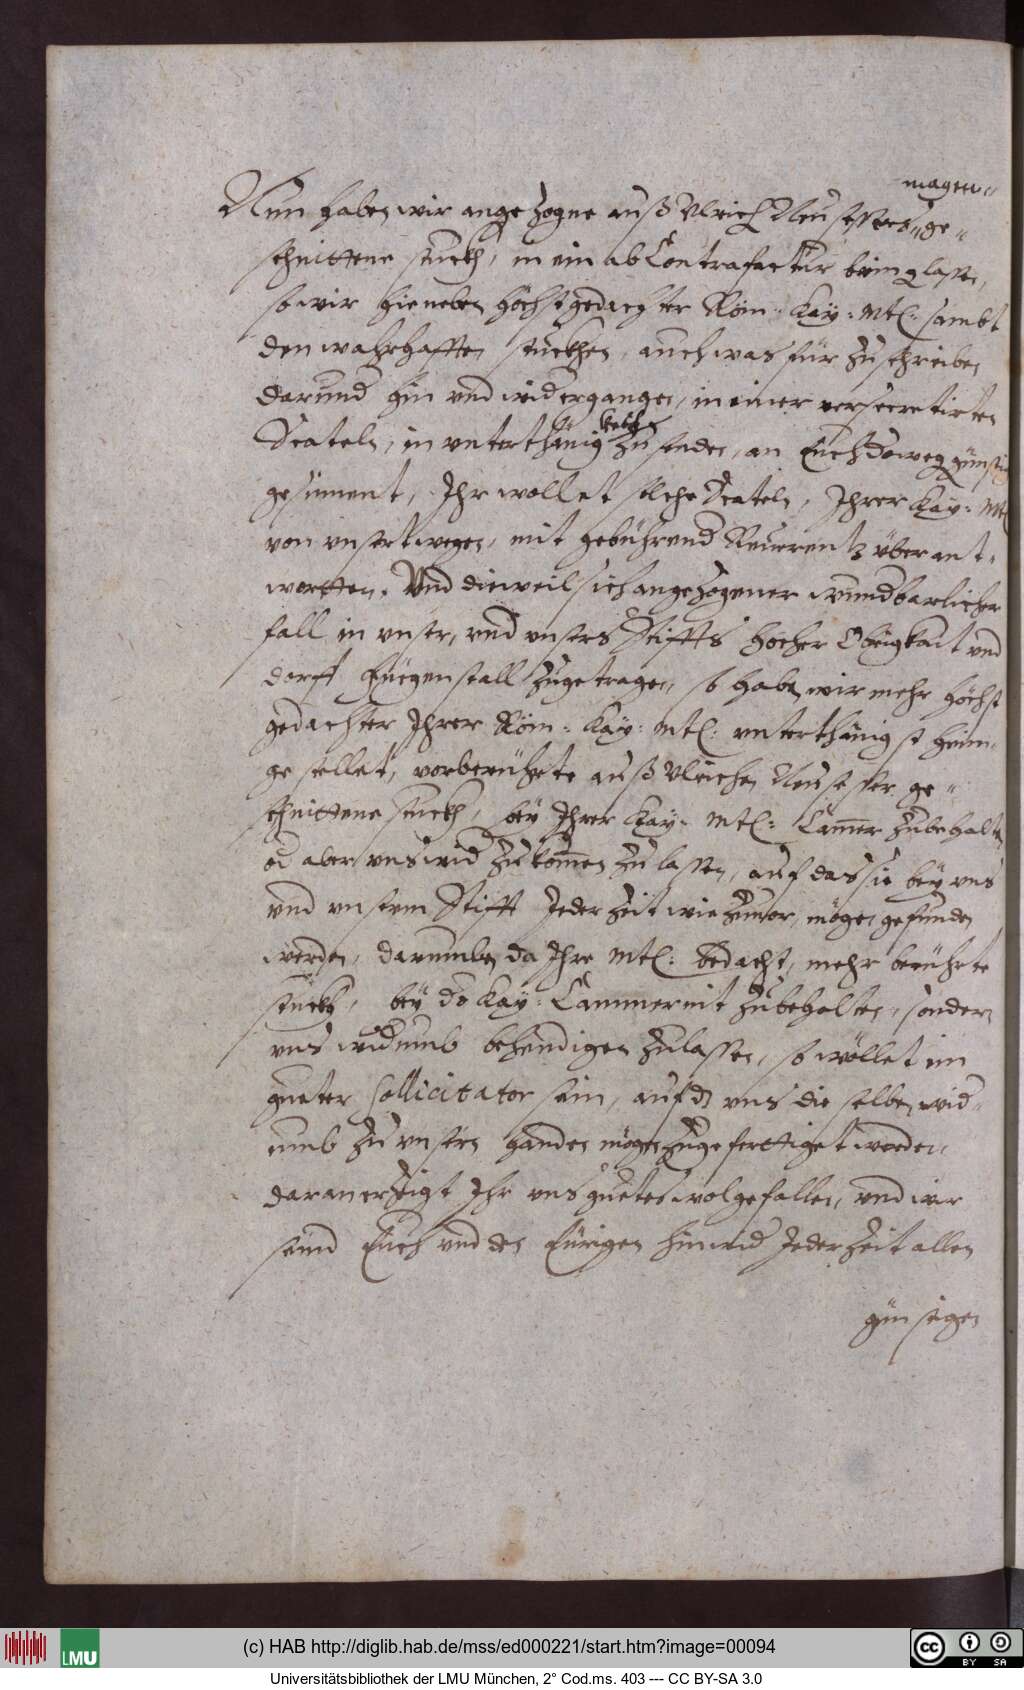 magen„
Nun haben wir angezogne auß Ulrich Neusessers „ge„
schnittene stuckh, in ein abContrafactur beim glasse,
so wir hieneben höchstgedachter Röm: Kay: Mtl: sambt
den wahrhafften stuckhen, auch was für zuschreiben
darund hin vnd widergangen, in einer versecretirten
Scateln, in vnterthänigkeit zusenden, an Euch deweg günstig
gesinnent, Ihr wollet solche Scateln, Ihrer Kay: Mtl
von vnsertwegen, mit gebührend Reuerentz überant„
wortten. Vnd dieweil sich angezogener wundbarlicher
fall in vnser, vnd vnsers Stiffts hocher Obrigkait vnd
dorff Fuegenstall zugetragen, so haben wir mehr höchst
gedachter Ihrer Röm: Kay: Mtl: vnterthänigst heim„
gestellet, vorberührte auß Ulrichen Neusesser ge„
schnittene stuckh, bey Ihrer Kay: Mtl: Camer zubehalten
od aber vns wid zukommen zulassen, auf das sie bey vns
vnd vnserm Stifft Jederzeit wie zuuor, mögen gefunden
werden, darumben da Ihre Mtl: bedacht, mehr berührte
stuckh, bey do Kay: Cammer nit zubehalten, sondern
vns widumb behendigen zulassen, so wöllet im
gueter Sollicitator sein, auf dz vns die selben wid„
umb zu vnsern handen mögen zugefertiget werden,
daran erzeigt Ihr vns guetes wolgefallen, vnd wir
seind Euch vnd den Eurigen hinwid Jederzeit allen
günstigen
(c) HAB http://diglib.hab.de/mss/ed000221/start.htm?image=00094
LMU
cc BY SA
Universitätsbibliothek der LMU München, 2° Cod.ms. 403 --- CC BY-SA 3.0